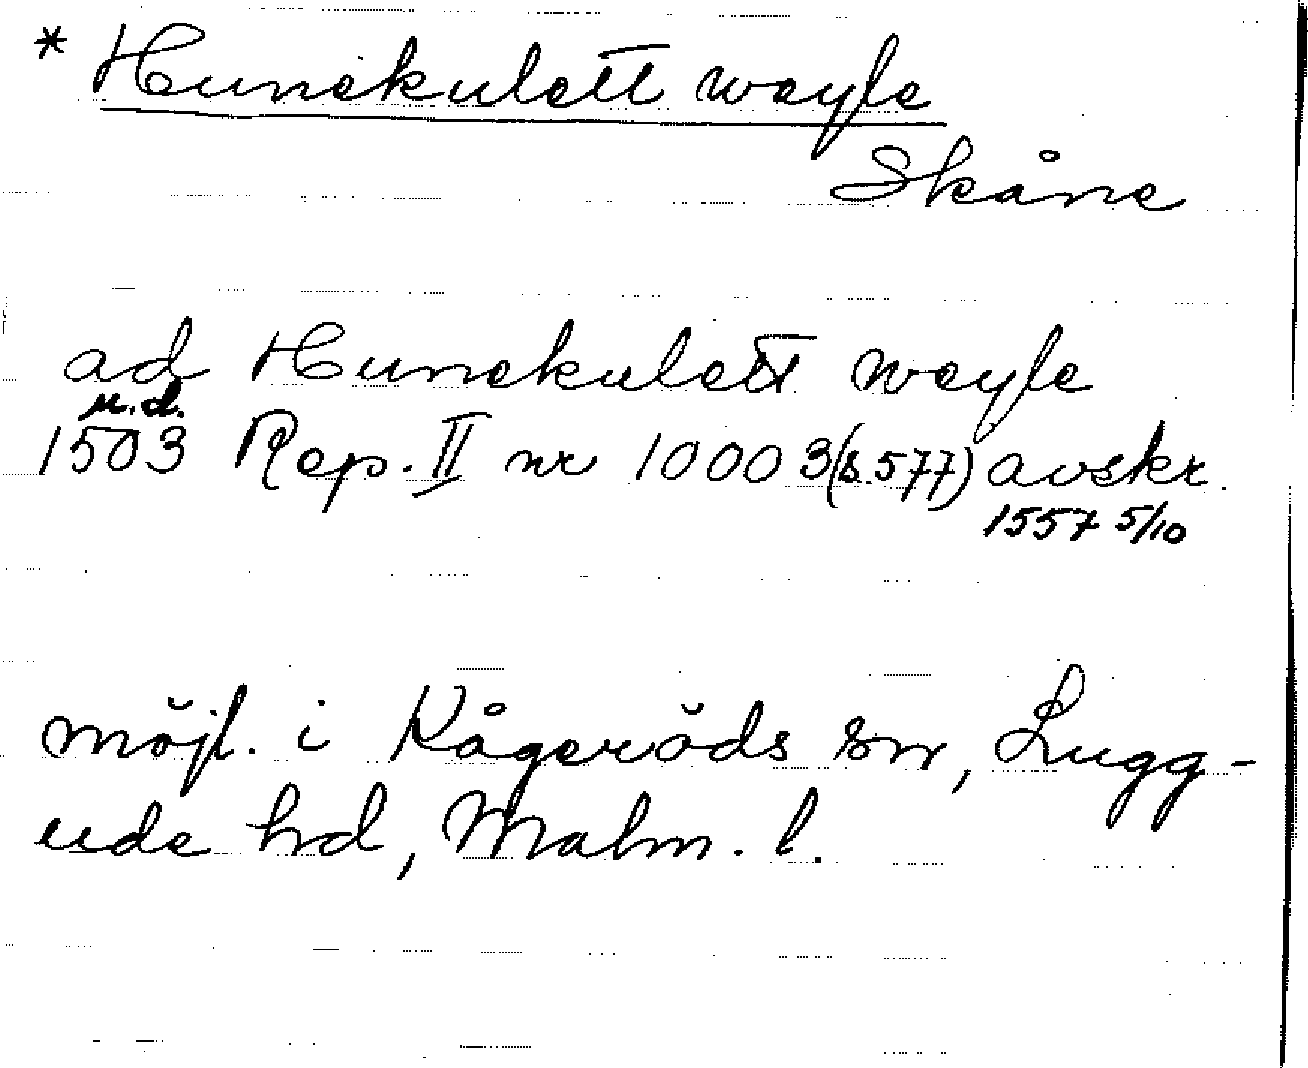 * Hunekulett weyle
Skåne
ad Hunekulett weyle
u.d.
1503 Rep. II nr 10003 (s. 577) avskr.
1557 5/10
möjl. i Kågeröds sn, Lugg-
ude hd, Malm. l.